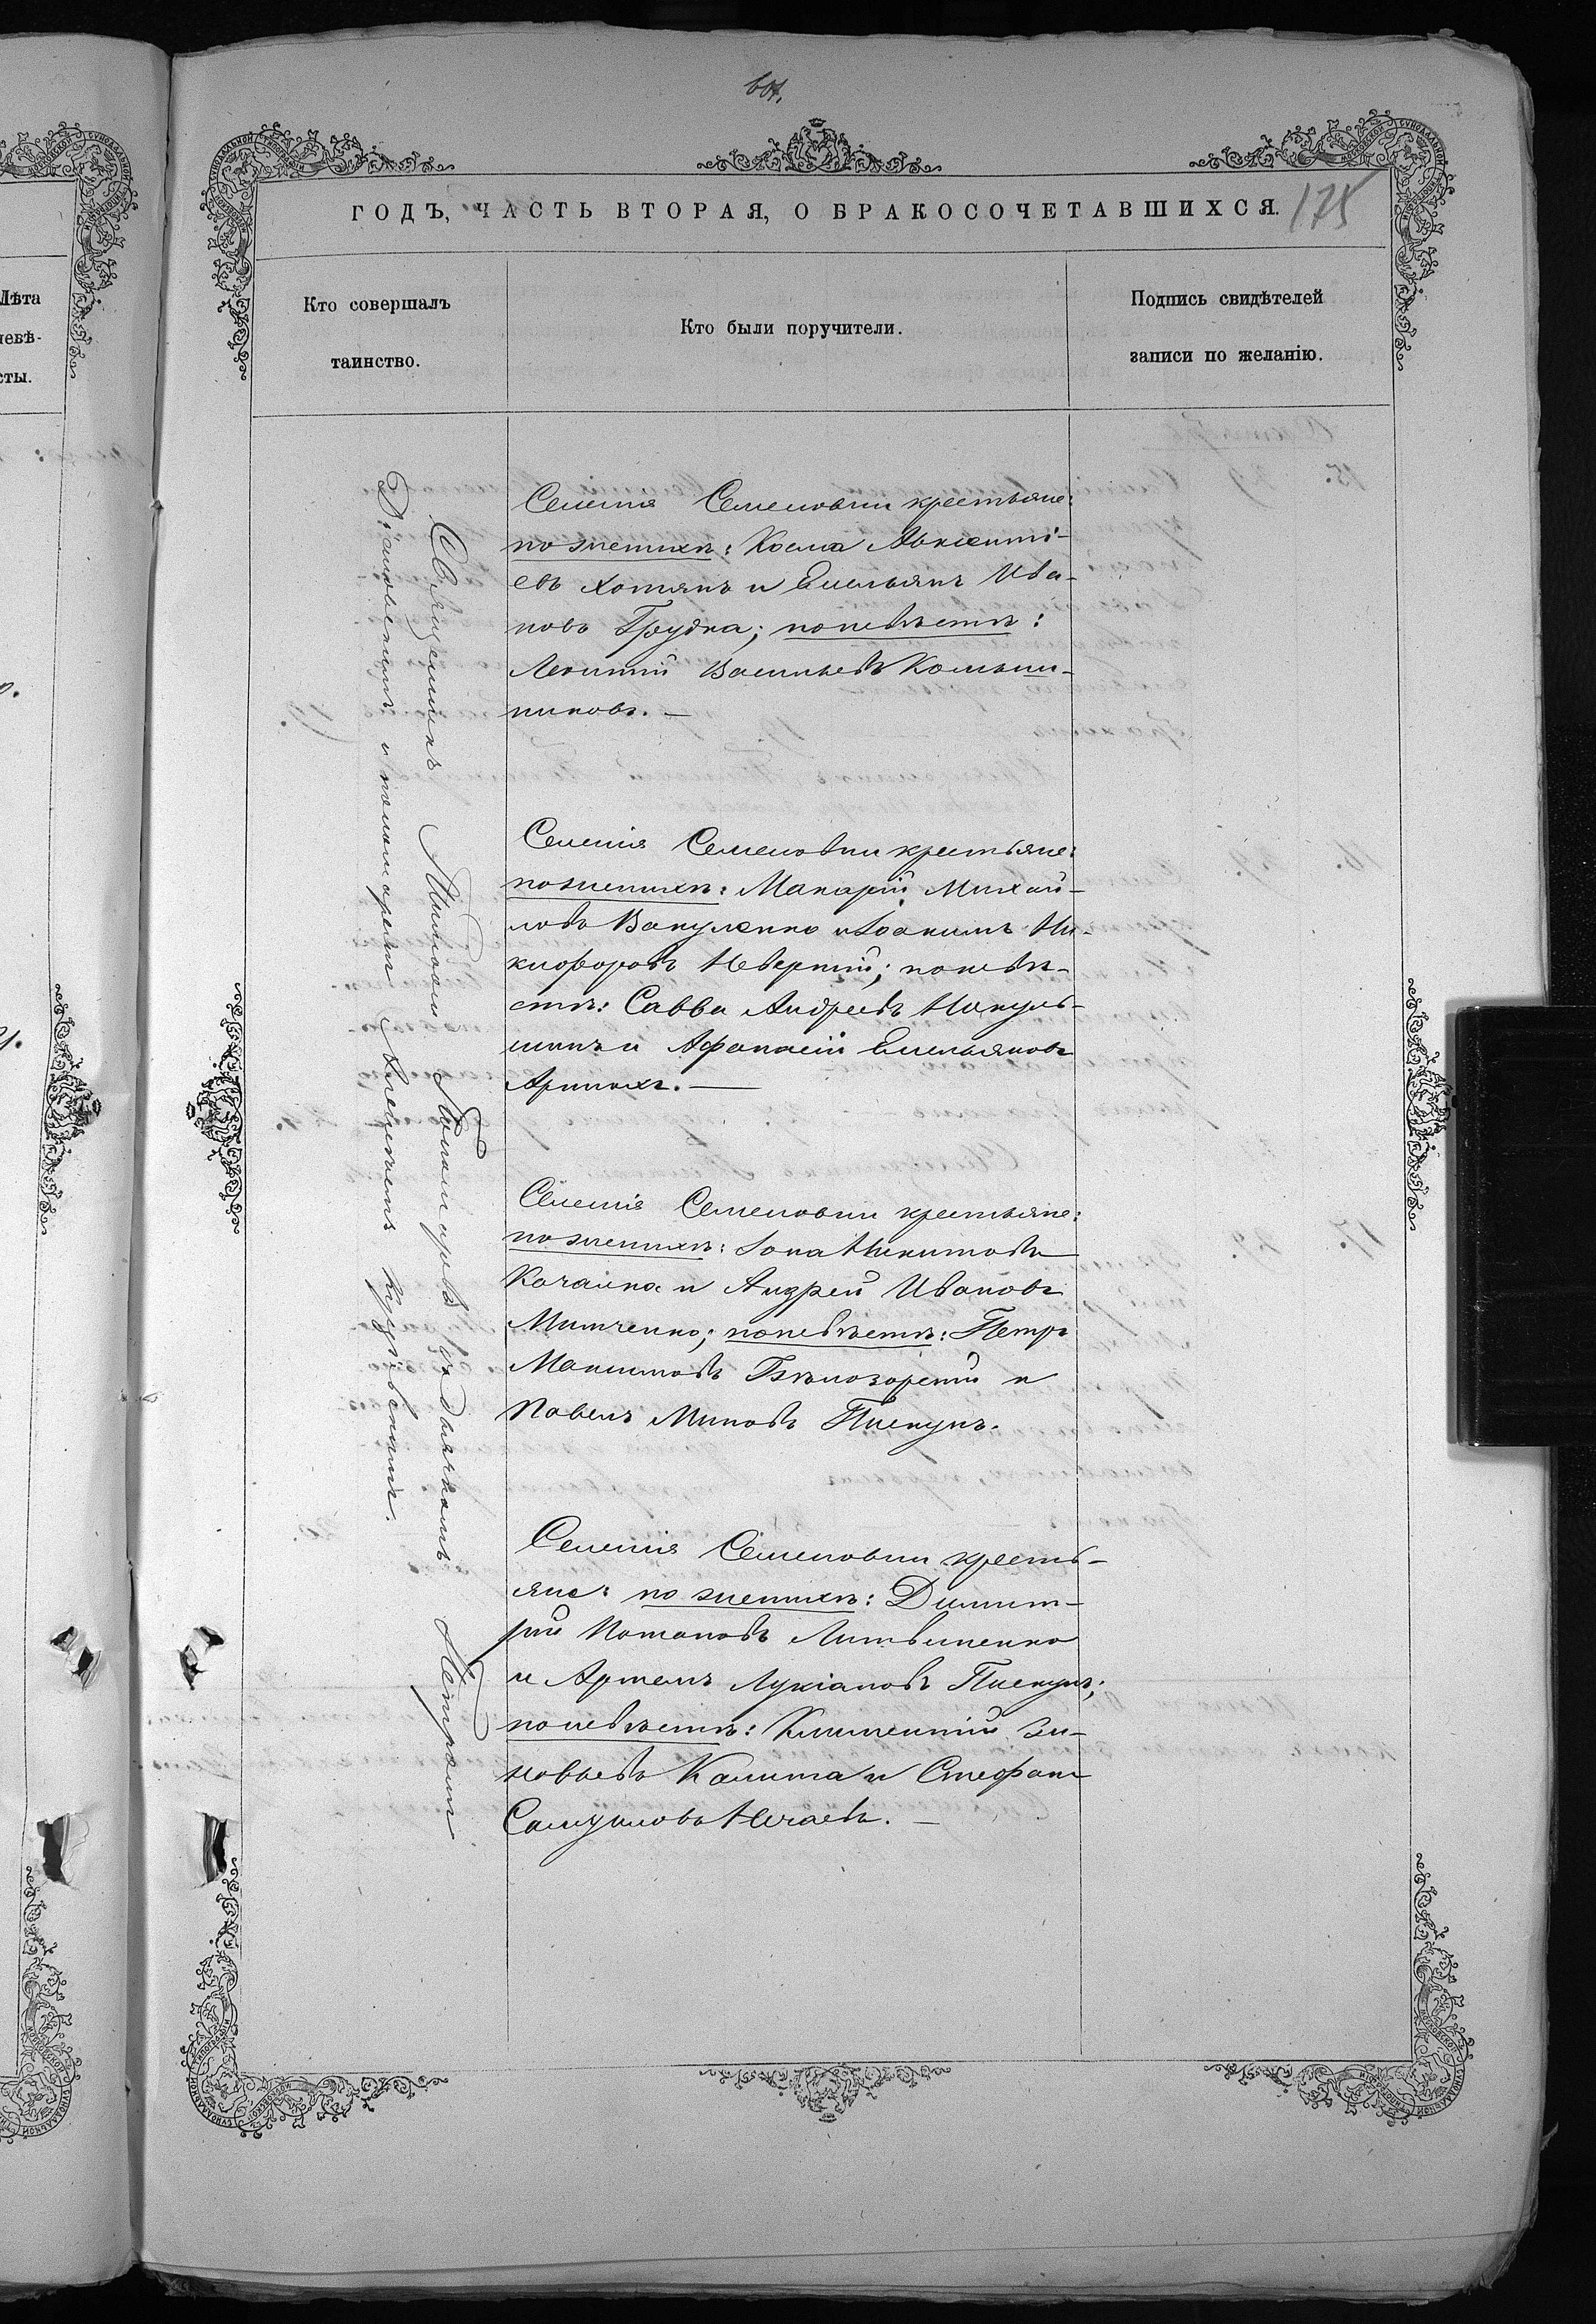 175
ГОДЪ, ЧАСТЬ ВТОРАЯ, О БРАКОСОЧЕТАВШИХСЯ.
Лѣта
невѣ-
сты.
Кто совершалъ
таинство.
Кто были поручители.
Подпись свидѣтелей
записи по желанію.
Священникъ Михаилъ Пономаревъ съ дьячкомъ Петромъ
и пономаремъ
Селенія Семеновки крестьяне:
по женихѣ: Косма Авксентi-
евъ Хотянъ и Емельянъ Ива-
новъ Грудка; по невѣстѣ:
Леонтій Васильевъ
никовъ. —
Селенія Семеновки крестьяне:
по женихѣ: Макарій Михай-
ловъ Вакуленко и Іоакимъ Ни-
кифоровъ Неверкій; по невѣ-
стѣ: Савва Андреевъ
и Афанасій Емельяновъ
Селенія Семеновки крестьяне:
по женихѣ: Іона Никитовъ
Качалка и Андрей Ивановъ
Митченко; по невѣстѣ: Петръ
Максимовъ Бѣлозорскій и
Павелъ Миновъ Пискунъ.
Селенія Семеновки кресть-
яне: по женихѣ: Димит-
рій Потаповъ Литвиненко
и Артемъ Лукіановъ Пискунъ;
по невѣстѣ: Климентій Зи-
новьевъ Калита и Стефанъ
Самуиловъ Нечаевъ. —